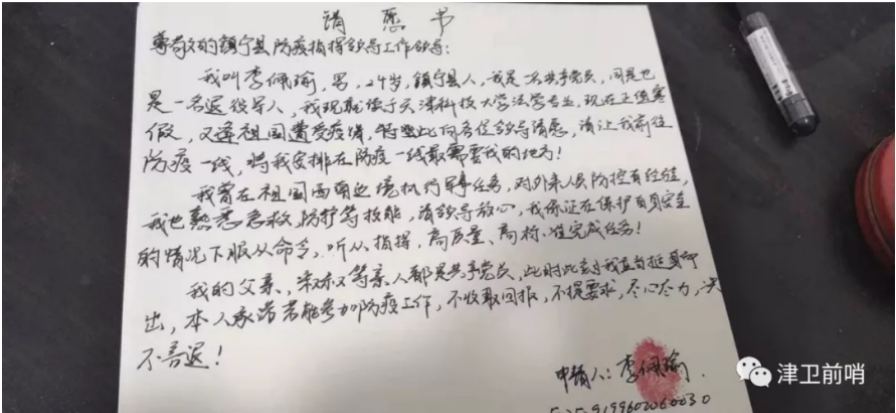 请愿书
尊敬的镇宁县防疫指挥领导工作领导：
我叫李佩瑜，男，24岁，镇宁县人，我是一名共产党员，同是也
是一名退役军人，我现就读于天津科技大学法学专业，现在正值寒
假，又逢祖国遭受疫情，特此向各位领导请愿，请让我前往
防疫一线，将我安排在防疫一线最需要我的地方！
我曾在祖国西南边境执行军事任务，对外来人员防控有经验，
我也熟悉急救、防护等技能，请领导放心，我保证在保护自身安全
的情况下服从命令、听从指挥，高质量、高标准完成任务！
我的父亲、叔叔等亲人都是共产党员，此时此刻我应当挺身而
出，本人承诺若能参加防疫工作，不收取回报，不提要求，尽心尽力，决
不言退！
申请人：李佩瑜
津卫前哨